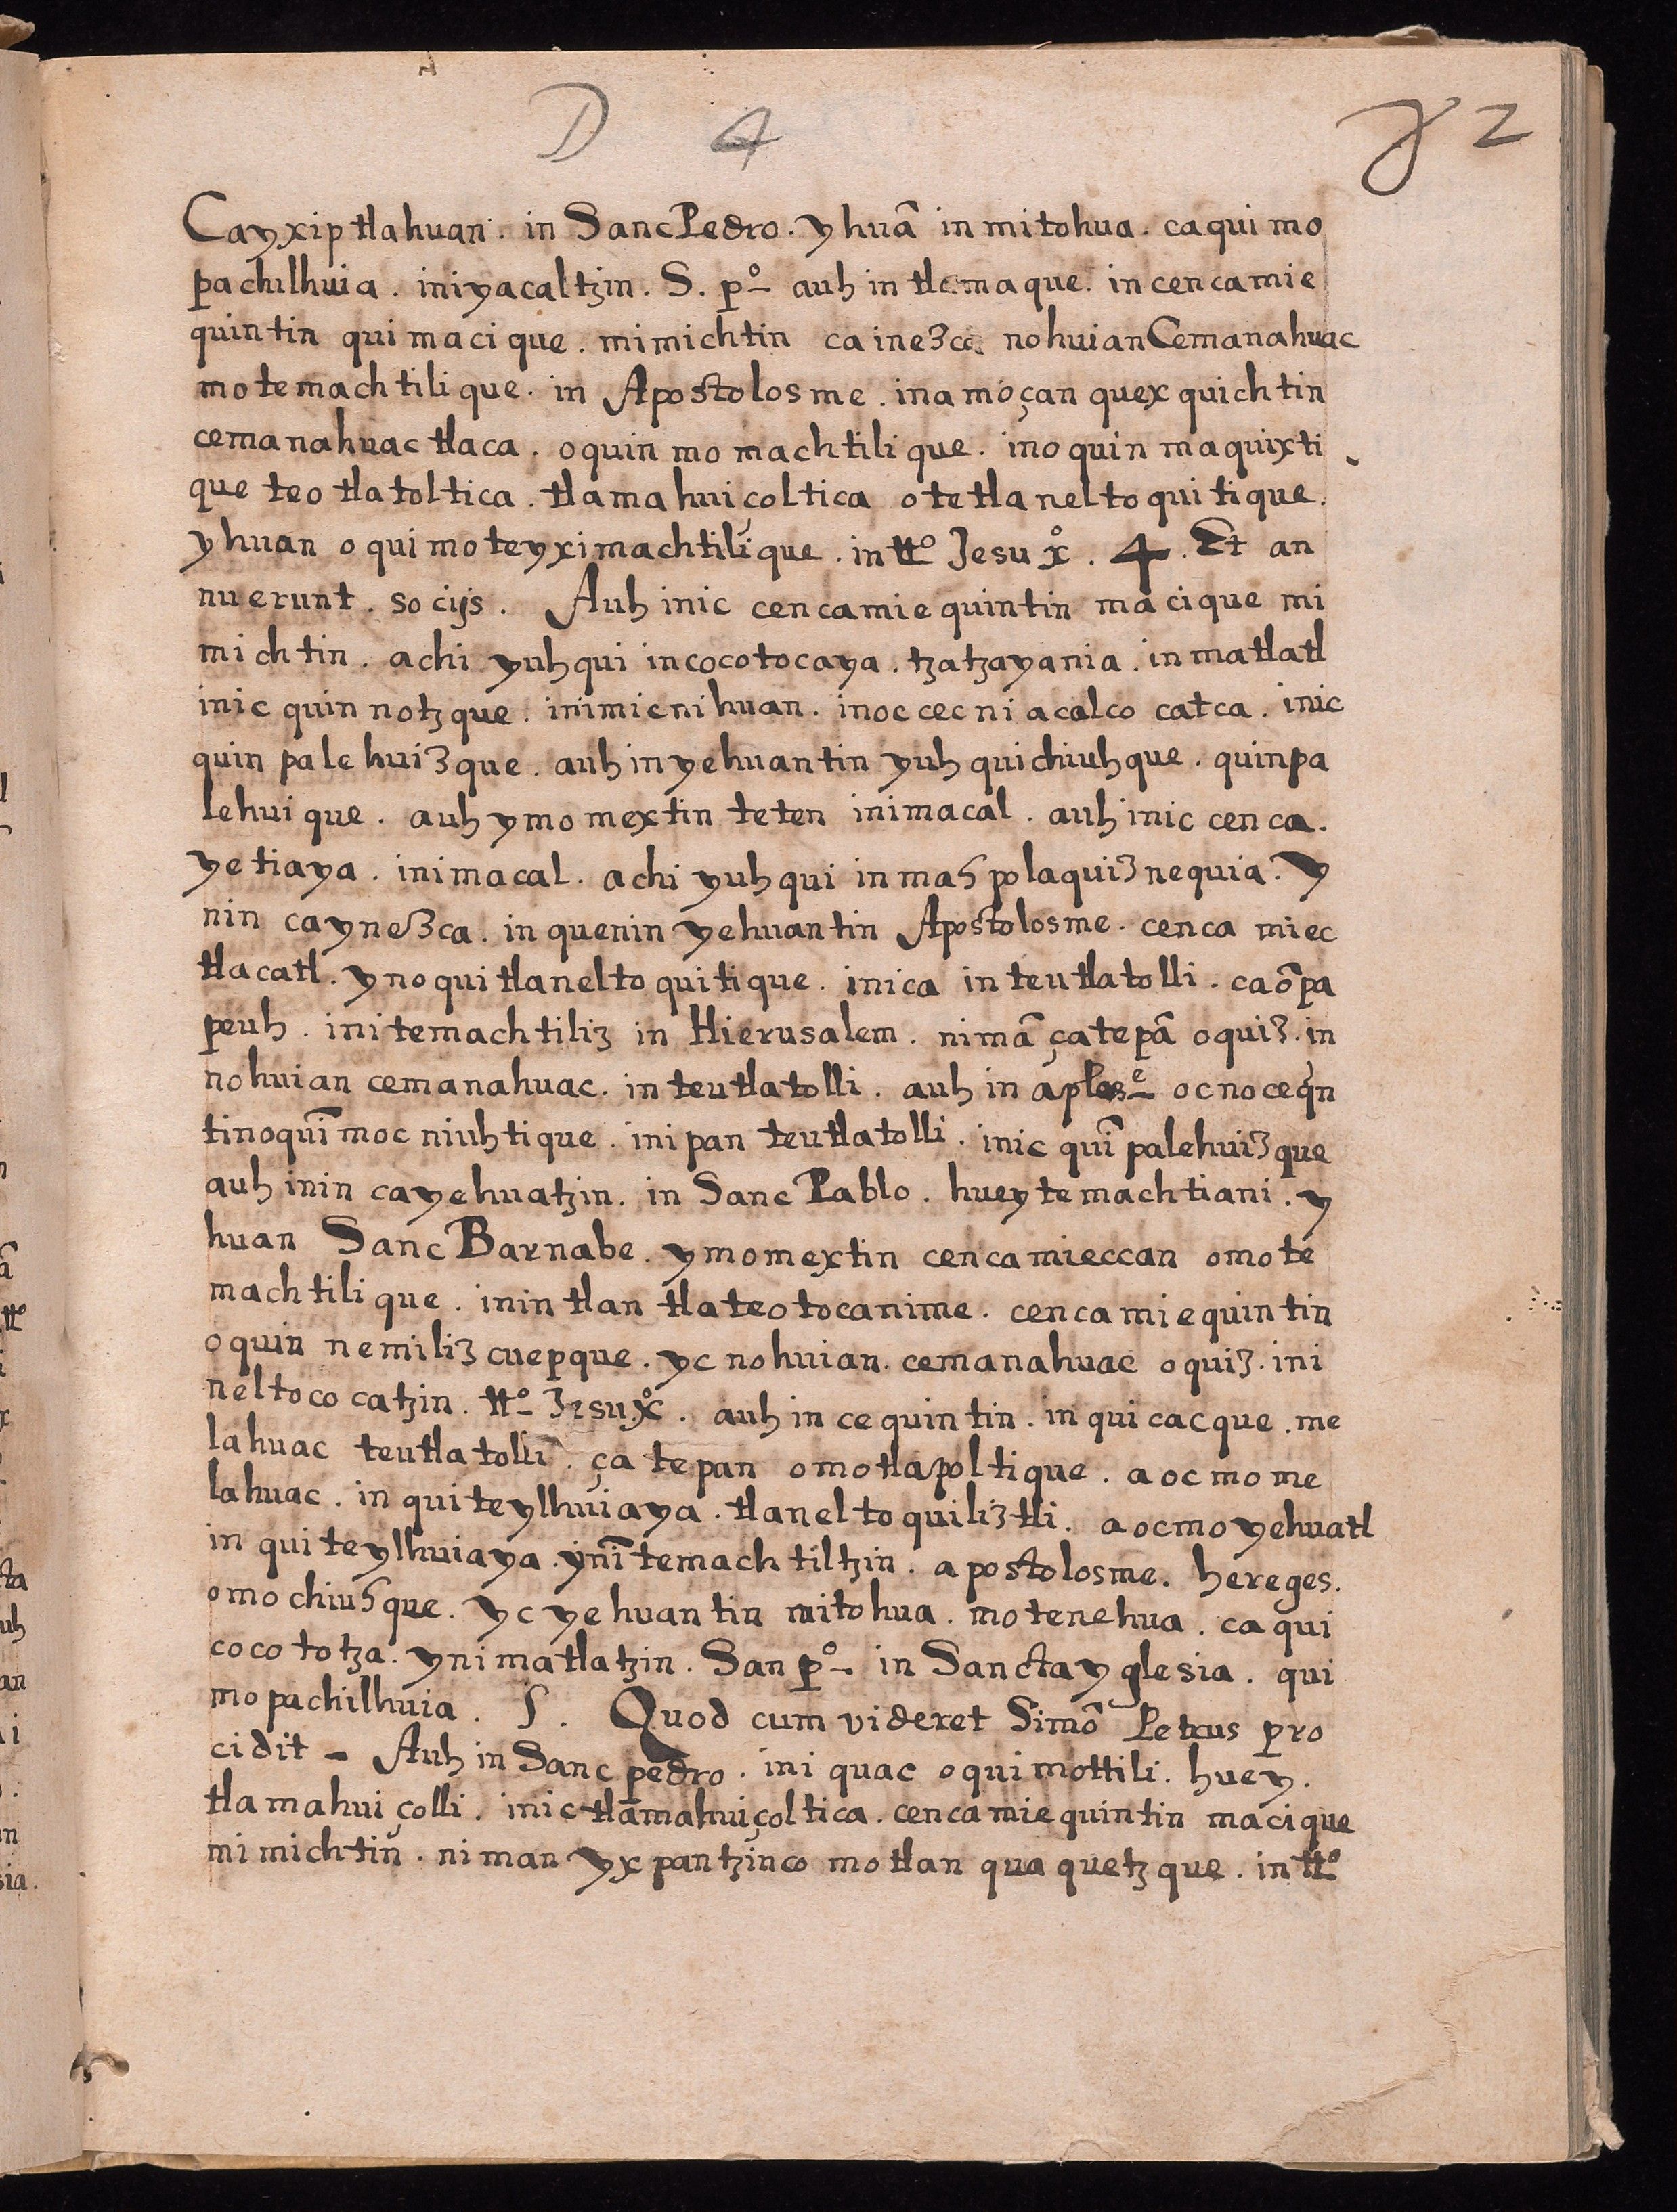 D 4 82
Cayxiptlahuan. in Sanc Pedro. yhuā in mitohua. caqui mo
pachilhuia. iniyacaltzin. S. p.º auh in tlamaque. in cencamie
quintin qui macique. mimichtin ca inezca nohuian Cemanahuac
motemachtilique. in Apostolosme. inamoçan quexquichtin
cemanahuac tlaca. oquinmomachtilique. inoquin maquixti
que teotlatoltica. tlamahuiçoltica otetlaneltoquitique.
yhuan oquimoteyximachtilique. in tt.º Jesu xº. 4. Et an
nuerunt. socijs. Auh inic cencamiequintin macique mi
michtin. achi yuhqui incocotocaya. tzatzayania. in matlatl
inic quin notzque. inimicnihuan. inoccecni acalco catca. inic
quin palehuizque. auh inyehuantin yuh quichiuhque. quinpa
lehuique. auh ymomextin teten inimacal. auh inic cenca.
yetiaya. inimacal. achi yuhqui inmah polaquiznequia. Y
nin caynezca. in quenin yehuantin Apostolosme. cenca miec
tlacatl. ynoquitlaneltoquitique. inica in teutlatolli. caōpa
peuh. initemachtiliz in Hierusalem. nimā çatepā oquiz. in
nohuian cemanahuac. in teutlatolli. auh in aplos.e ocnoceqn
tinoquīmocniuhtique. inipan teutlatolli. inic quī palehuizque
auh inin cayehuatzin. in Sanc Pablo. hueytemachtiani. y
huan Sanc Barnabe. ymomextin cencamieccan omote
machtilique. inintlan tlateotocanime. cencamiequintin
oquin nemilizcuepque. yc nohuian. cemanahuac oquiz. ini
neltococatzin. tt.º Jesu xº. auh in cequintin. in quicacque. me
lahuac teutlatolli. çatepan omotlapoltique. aocmo me
lahuac. in quiteylhuiaya. tlaneltoquiliztli. aocmo yehuatl
in quiteylhuiaya. ynītemachtiltzin. apostolosme. hereges.
omochiuhque. yc yehuantin mitohua. motenehua. caqui
cocototza. ynimatlatzin. San p.º in Sancta yglesia. qui
mopachilhuia. 5. Quod cum videret Simō Petrus pro
cidit - Auh in Sanc pedro. ini quac oquimottili. huey.
tlamahuiçolli. inic tlamahuiçoltica. cencamiequintin macique
mimichtin. niman yxpantzinco motlanquaquetzque. in tt.º